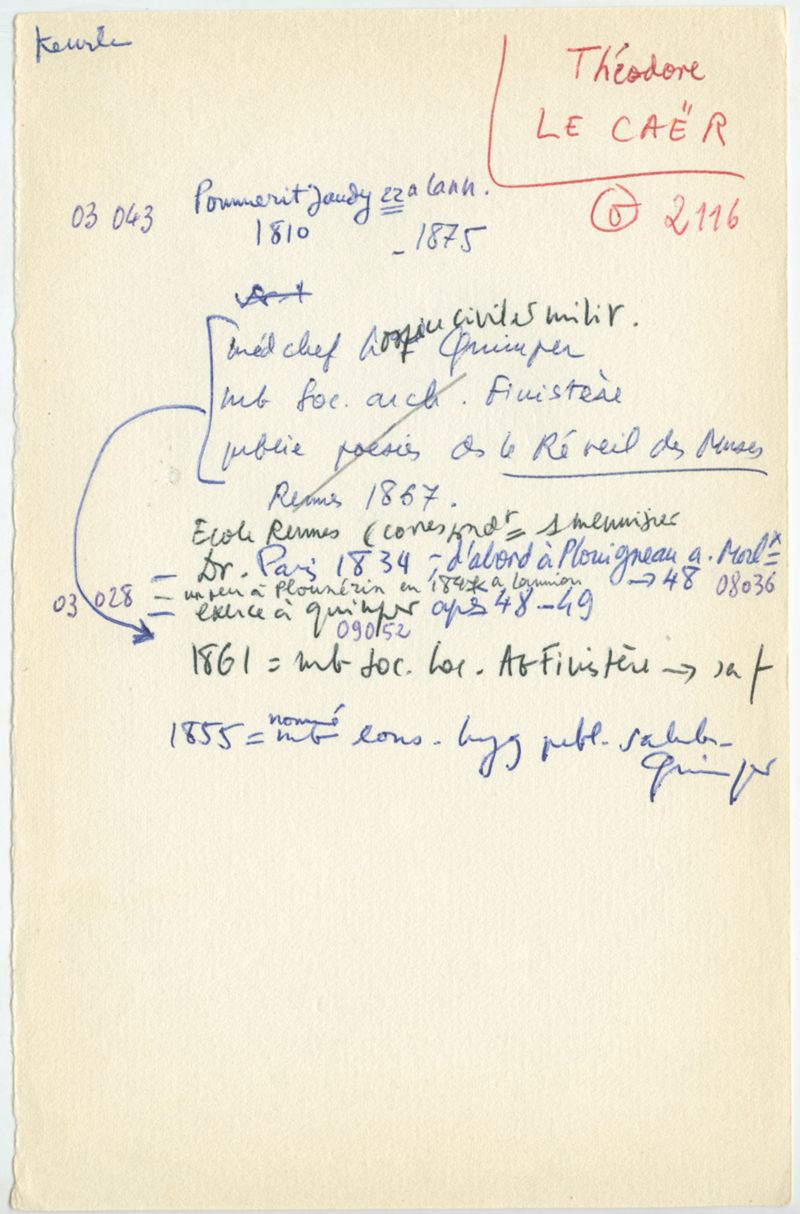 Théodore
LE CAËR
2116
03 043 Pommerit Jaudy 22 a Lann.
1810 - 1875
civil et milit.
méd chef Quimper
mb Soc. arch. Finistère
publie poésies ds le Réveil des Muses
Rennes 1867.
Ecole Rennes (correspondt =
Dr. Paris 1834 ; d'abord à Plouigneau a. Morlx =
→ 48 08036
03 028 - un peu à Plounérin en 184 a Lannion
= exerce à Quimper après 48-49
09052
1861 = mb Soc. Finistère → sa †
1855 = nommé mb cons. hyg publ. salubr.
Quimper